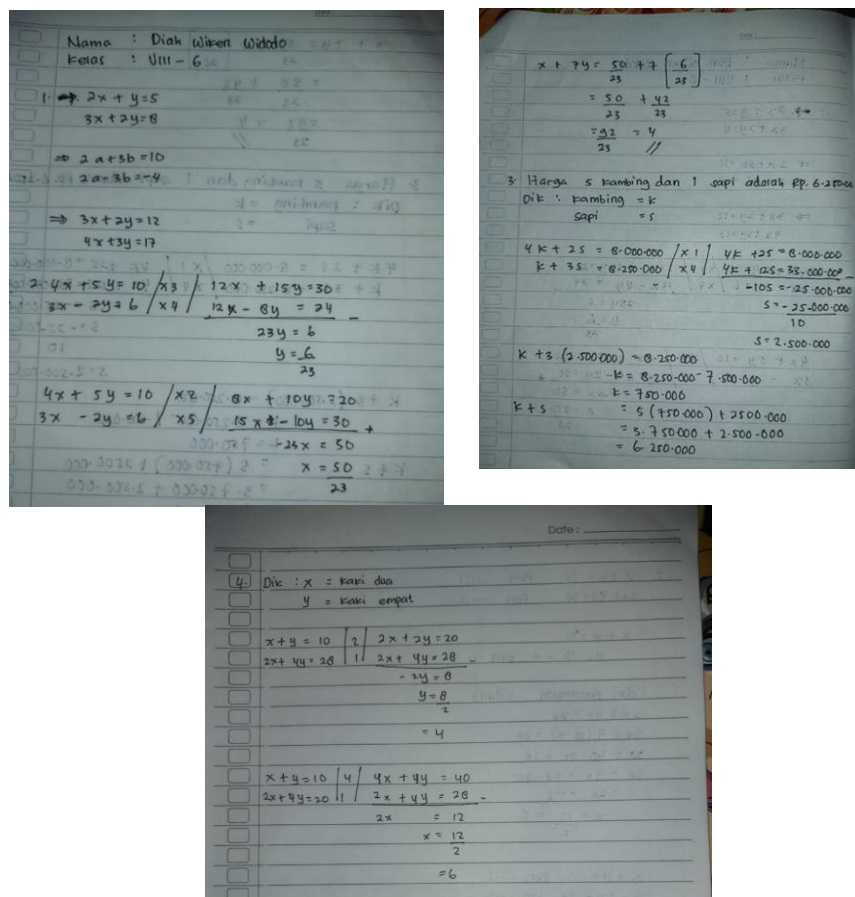 Nama : Diah Wiken Widodo
Kelas : VIII - 6
1. ⇒ 2x + y = 5
3x + 2y = 8
⇒ 2a + 3b = 10
2a - 3b = -4
⇒ 3x + 2y = 12
4x + 3y = 17
2. 4x + 5y = 10 / x3 / 12x + 15y = 30
3x - 2y = 6 / x4 / 12x - 8y = 24 -
23y = 6
y = 6
23
4x + 5y = 10 / x2 / 8x + 10y = 20
3x - 2y = 6 / x5 / 15x - 10y = 30 +
23x = 50
x = 50
23
x + 7y = 50/23 + 7 [6/23]
= 50/23 + 42/23
= 92/23 = 4 //
3. Harga 5 kambing dan 1 sapi adalah Rp. 6.250.000
Dik : kambing = k
sapi = s
4k + 2s = 8.000.000 / x1 / 4k + 2s = 8.000.000
k + 3s = 8.250.000 / x4 / 4k + 12s = 33.000.000 -
-10s = -25.000.000
s = -25.000.000
10
s = 2.500.000
k + 3.(2.500.000) = 8.250.000
k = 8.250.000 - 7.500.000
k = 750.000
k + s = 5(750.000) + 2500.000
= 3.750.000 + 2.500.000
= 6.250.000
Date :
4. Dik : x = kaki dua
y = kaki empat
x + y = 10 | 2 | 2x + 2y = 20
2x + 4y = 28 | 1 | 2x + 4y = 28 -
- 2y = 8
y = 8
2
= 4
x + y = 10 | 4 | 4x + 4y = 40
2x + 4y = 20 | 1 | 2x + 4y = 28 -
2x = 12
x = 12
2
= 6